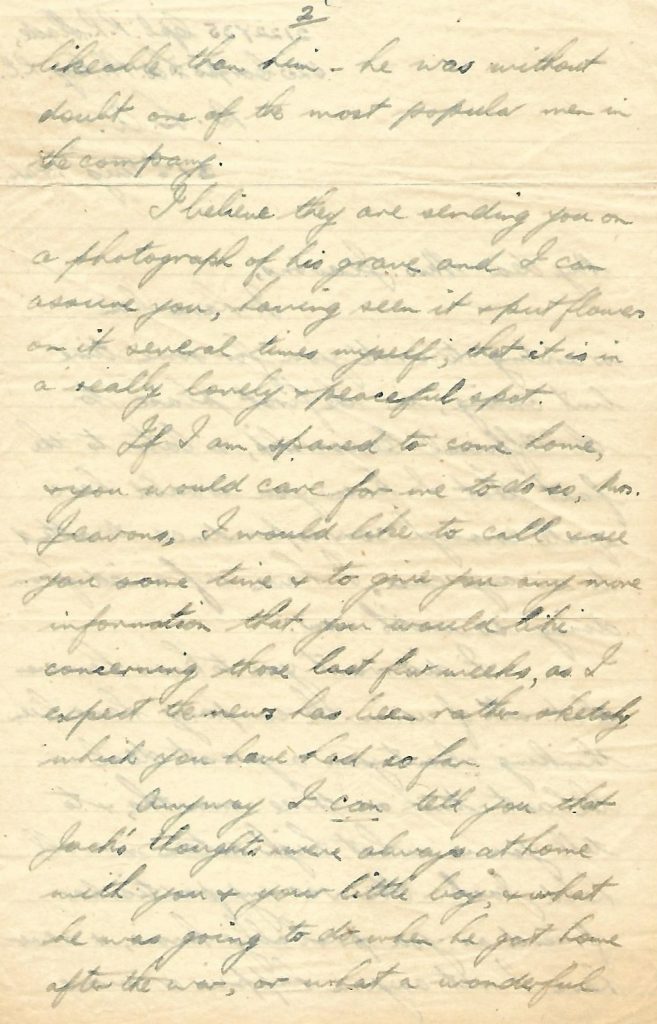 2
likeable than him - he was without
doubt one of the most popular men in
the company.
I believe they are sending you on
a photograph of his grave and I can
assure you, having seen it & put flowers
on it several times myself, that it is in
a really lovely & peaceful spot.
If I am spared to come home,
& you would care for me to do so, Mrs.
Jeavons, I would like to call & see
you some time & to give you any more
information that you would like
concerning those last few weeks, as I
expect the news has been rather sketchy
which you have had so far.
Anyway I can tell you that
Jack's thoughts were always at home
with you & your little boy, & what
he was going to do when he got home
after the war, or what a wonderful